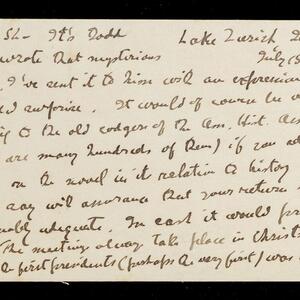 SL— It's Dodd Lake Zurich
wrote that mysterious July
I've sent it to him with an expression
surprise. It would of course be
to the old codgers of the Am. Hist. Ass
are many hundreds of them) if you
on the novel in its relation to history
say will assurance that your return
adequate. In cash it would
The meeting always take place in Christ
first presidents (perhaps the very first) was